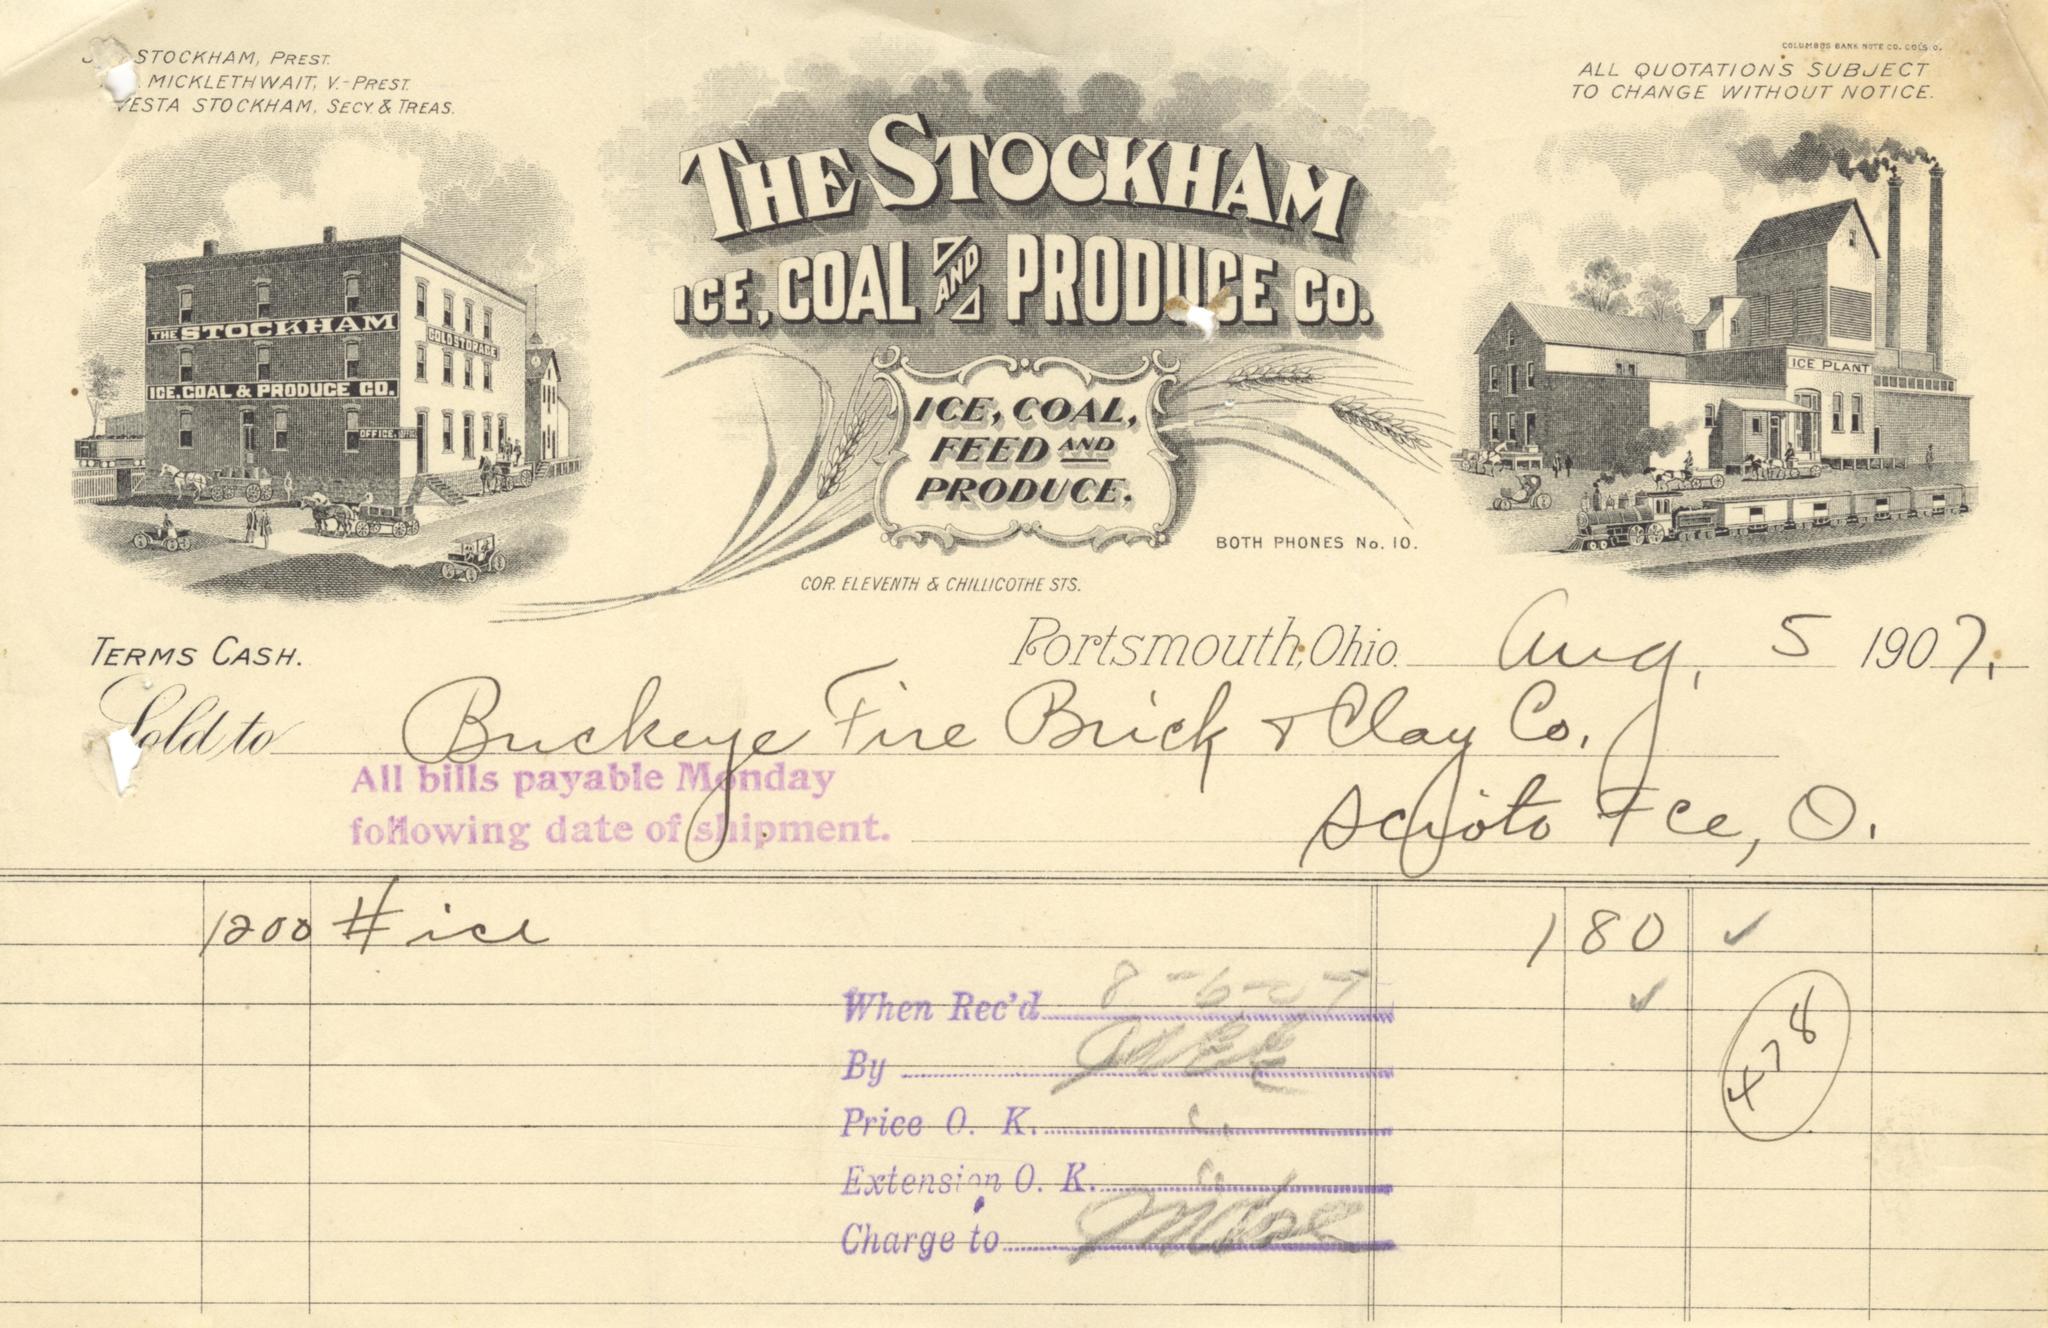 STOCKHAM, PREST.
MICKLETHWAIT, V.-PREST.
VESTA STOCKHAM, SECY. & TREAS.
COLUMBUS BANK NOTE CO. COLS. O.
ALL QUOTATIONS SUBJECT
TO CHANGE WITHOUT NOTICE.
THE STOCKHAM
ICE, COAL AND PRODUCE CO.
THE STOCKHAM
ICE, COAL & PRODUCE CO.
COLD STORAGE
OFFICE,
ICE PLANT
ICE, COAL,
FEED AND
PRODUCE.
BOTH PHONES No. 10.
COR. ELEVENTH & CHILLICOTHE STS.
TERMS CASH.
Portsmouth, Ohio. Aug. 5 1907.
Sold to Buckeye Fire Brick & Clay Co.
All bills payable Monday
following date of shipment.
Scioto Fce, O.
1200 # ice 1 80 ✓
When Rec'd 8-6-07 ✓
By
Price O. K.
Extension O. K.
Charge to
478